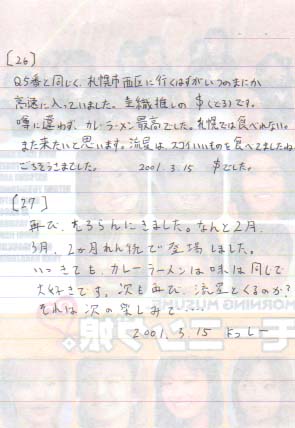 [26]
Q5番と同じく、札幌市西区に行くはずがいつのまにか
高速に入っていました。圭織推しの 亨(とる)です。
噂に違わず、カレーラーメン最高でした。札幌では食べれない。
また来たいと思います。流星は、スゴイいいものを食べてましたね
ごちそうさまでした。 2001.3.15 亨でした。
[27]
再び、むろらんにきました。なんと2月、
3月、2か月れん続で登場しました。
いつきても、カレーラーメンは味は同じで
大好きです。次も再び、流星とくるのか?
それは次の楽しみで・・・・
2001.3.15 よっしー
MORNING MUSUME
モーニング娘。